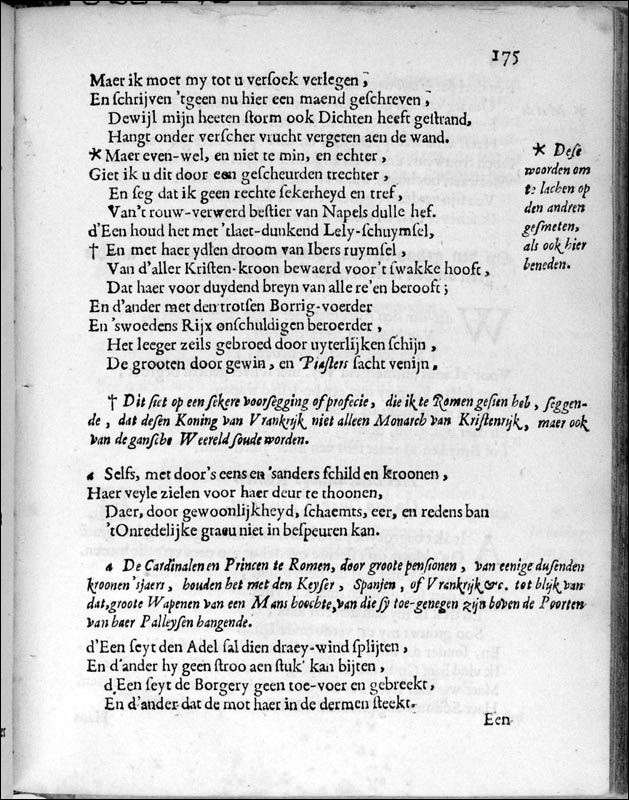 175
Maer ik moet my tot u versoek verlegen,
En schrijven 'tgeen nu hier een maend geschreven,
Dewijl mijn heeten storm ook Dichten heeft gestrand,
Hangt onder verscher vrucht vergeten aen de wand.
* Maer even-wel, en niet te min, en echter,
Giet ik u dit door een gescheurden trechter,
En seg dat ik geen rechte sekerheyd en tref,
Van't rouw-verwerd bestier van Napels dulle hef.
d'Een houd het met 'tlaet-dunkend Lely-schuymsel,
† En met haer ydlen droom van Ibers ruymsel,
Van d'aller Kristen-kroon bewaerd voor't swakke hooft,
Dat haer voor duydend breyn van alle re'en berooft;
En d'ander met den trotsen Borrig-voerder
En 'swoedens Rijx onschuldigen beroerder,
Het leeger zeils gebroed door uyterlijken schijn,
De grooten door gewin, en Piasters sacht venijn.
* Dese
woorden om
te lachen op
den andren
gesmeten,
als ook hier
beneden.
† Dit siet op een sekere voorsegging of profecie, die ik te Romen gesien heb, seggen-
de, dat desen Koning van Vrankrijk niet alleen Monarch van Kristenrijk, maer ook
van de gansche Weereld soude worden.
a Selfs, met door's eens en 'sanders schild en kroonen,
Haer veyle zielen voor haer deur te thoonen,
Daer, door gewoonlijkheyd, schaemts, eer, en redens ban
'tOnredelijke graeu niet in bespeuren kan.
a De Cardinalen en Princen te Romen, door groote pensionen, van eenige dusenden
kroonen 'sjaers, houden het met den Keyser, Spanjen, of Vrankrijk &c. tot blijk van
dat, groote Wapenen van een Mans hoochte, van die sy toe-genegen zijn boven de Poorten
van haer Palleysen hangende.
d'Een seyt den Adel sal dien draey-wind splijten,
En d'ander hy geen stroo aen stuk' kan bijten,
d'Een seyt de Borgery geen toe-voer en gebreekt,
En d'ander dat de mot haer in de dermen steekt.
Een